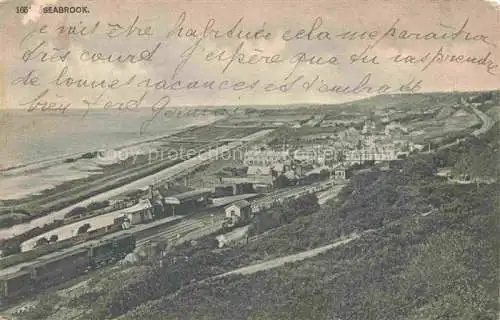 160. SEABROOK.
je vais être habituée cela me paraîtra
très court. J'espère que tu vas prendre
de bonnes vacances et dormiras
bien fort
© copyright